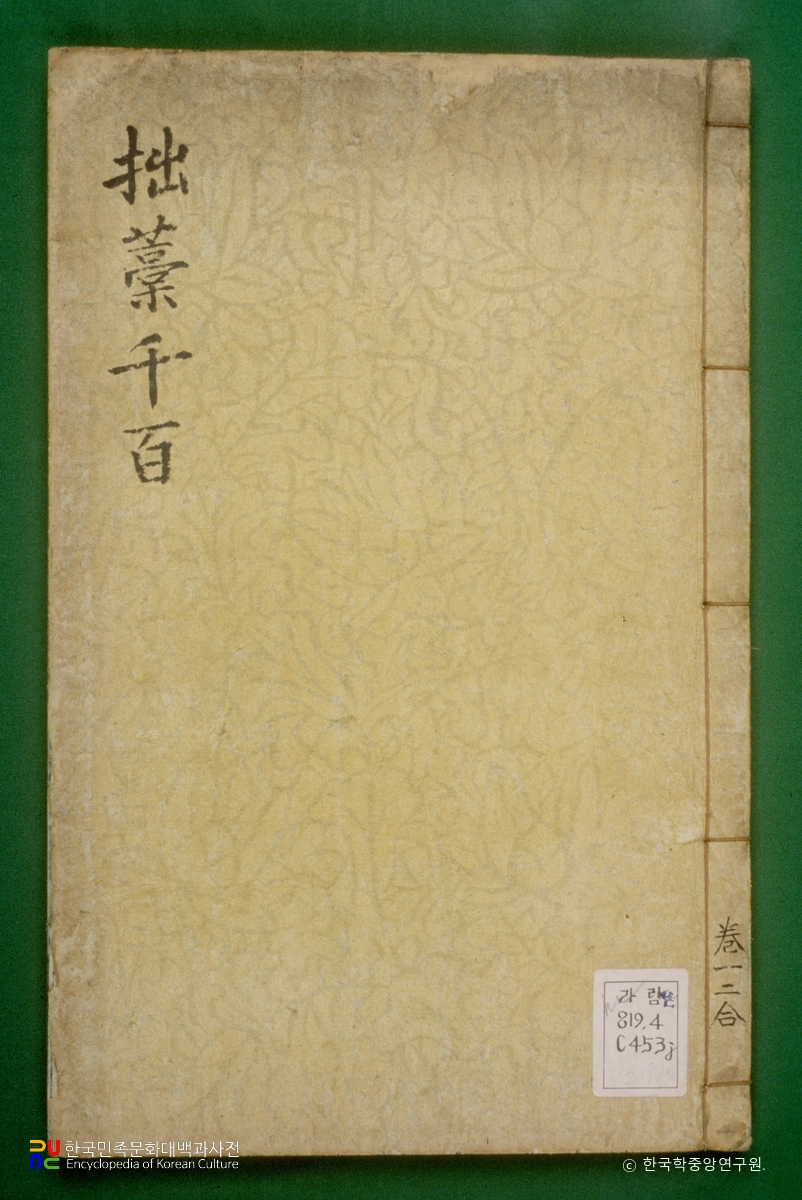 拙藁千百
卷一二合
가람
819.4
C453j
한국민족문화대백과사전
Encyclopedia of Korean Culture
ⓒ 한국학중앙연구원.